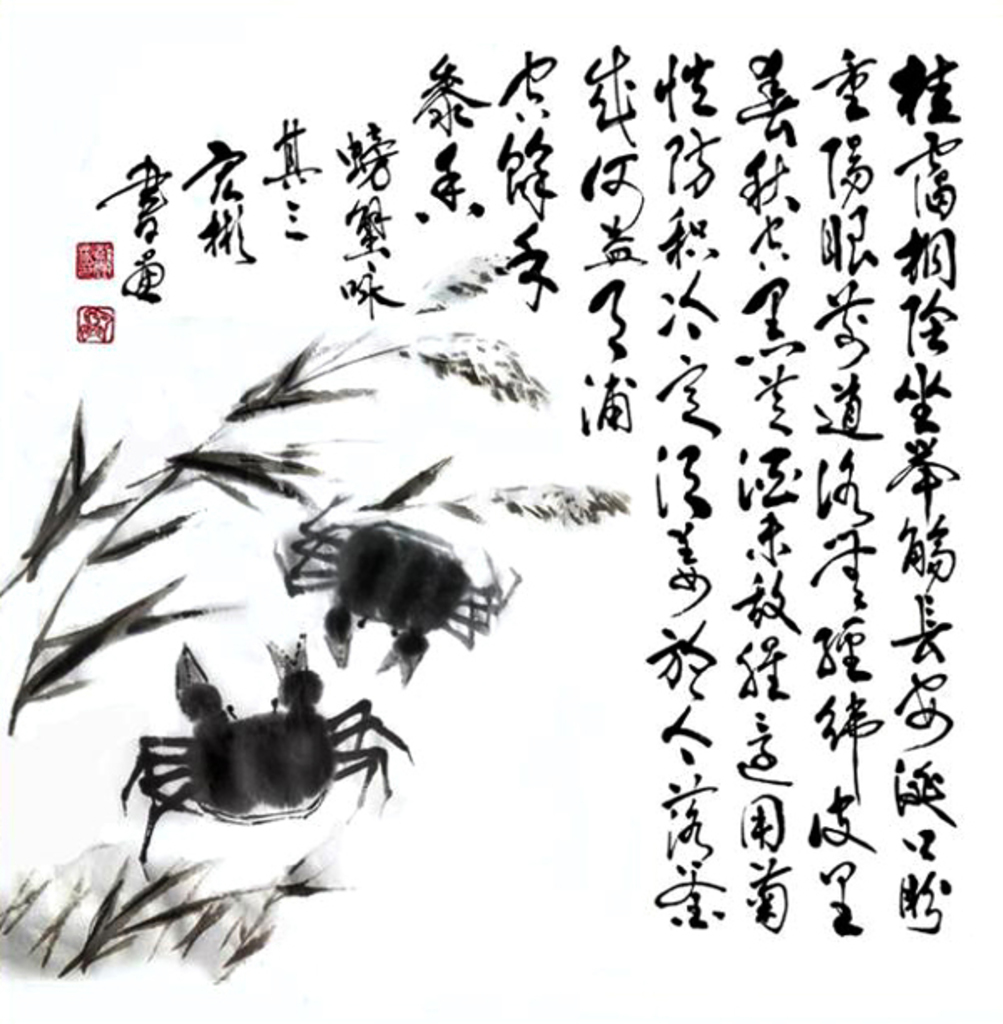 桂靄桐陰坐举觴長安涎口盼
重陽眼前道路無經緯皮里
春秋空黑黄酒未敌腥還用菊
性防积冷定須姜於今落釜
成何益月浦
空餘禾
黍香
螃蟹咏
其三
宏彬
書畫